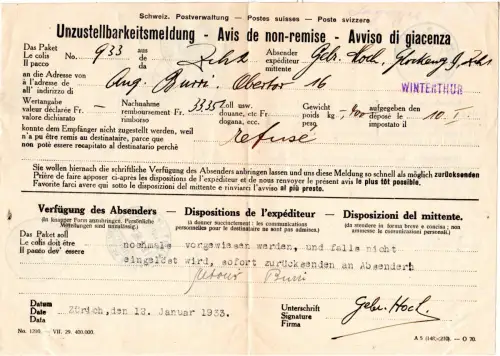 Schweiz. Postverwaltung – Postes suisses – Poste svizzere
Unzustellbarkeitsmeldung - Avis de non-remise - Avviso di giacenza
Das Paket aus Absender
Le colis No. 933 de Zch 1 expéditeur Gebr. Hoch,
Il pacco da mittente
an die Adresse von
à l'adresse de Aug. Burri. Obertor 16
all' indirizzo di
WINTERTHUR
Wertangabe Nachnahme Zoll usw. Gewicht aufgegeben den
valeur déclarée Fr. — remboursement Fr. 33.35 douane, etc Fr. poids kg déposé le 10. I.
valore dichiarato rimborso dogana, ecc. peso impostato il
konnte dem Empfänger nicht zugestellt werden, weil
n'a pu être remis au destinataire, parce que refusé
non potè essere recapitato al destinatario perchè
Sie wollen hiernach die schriftliche Verfügung des Absenders anbringen lassen und uns diese Meldung so schnell als möglich zurücksenden
Prière de faire apposer ci-après les dispositions de l'expéditeur et de nous renvoyer le présent avis le plus tôt possible.
Favorite farci avere qui sotto le disposizioni del mittente e rinviarci l'avviso al più presto.
Verfügung des Absenders – Dispositions de l'expéditeur – Disposizioni del mittente.
(in knapper Form anzubringen. Persönliche Mitteilungen sind unzulässig).
(à donner succinctement: les communications personnelles pour le destinataire ne sont pas admises).
(da stendere in forma breve e concisa; non ammesse le comunicazioni personali.)
Das Paket soll
Le colis doit être nochmals vorgewiesen werden, und falls nicht
Il pacco dev' essere eingelöst wird, sofort zurücksenden an Absender
retour Burri
Datum
Date Zürich, den 12. Januar 1933.
Data
Unterschrift
Signature Gebr. Hoch.
Firma
No. 1290. – VII. 29. 400.000.
A 5 (148×210). – O 70.